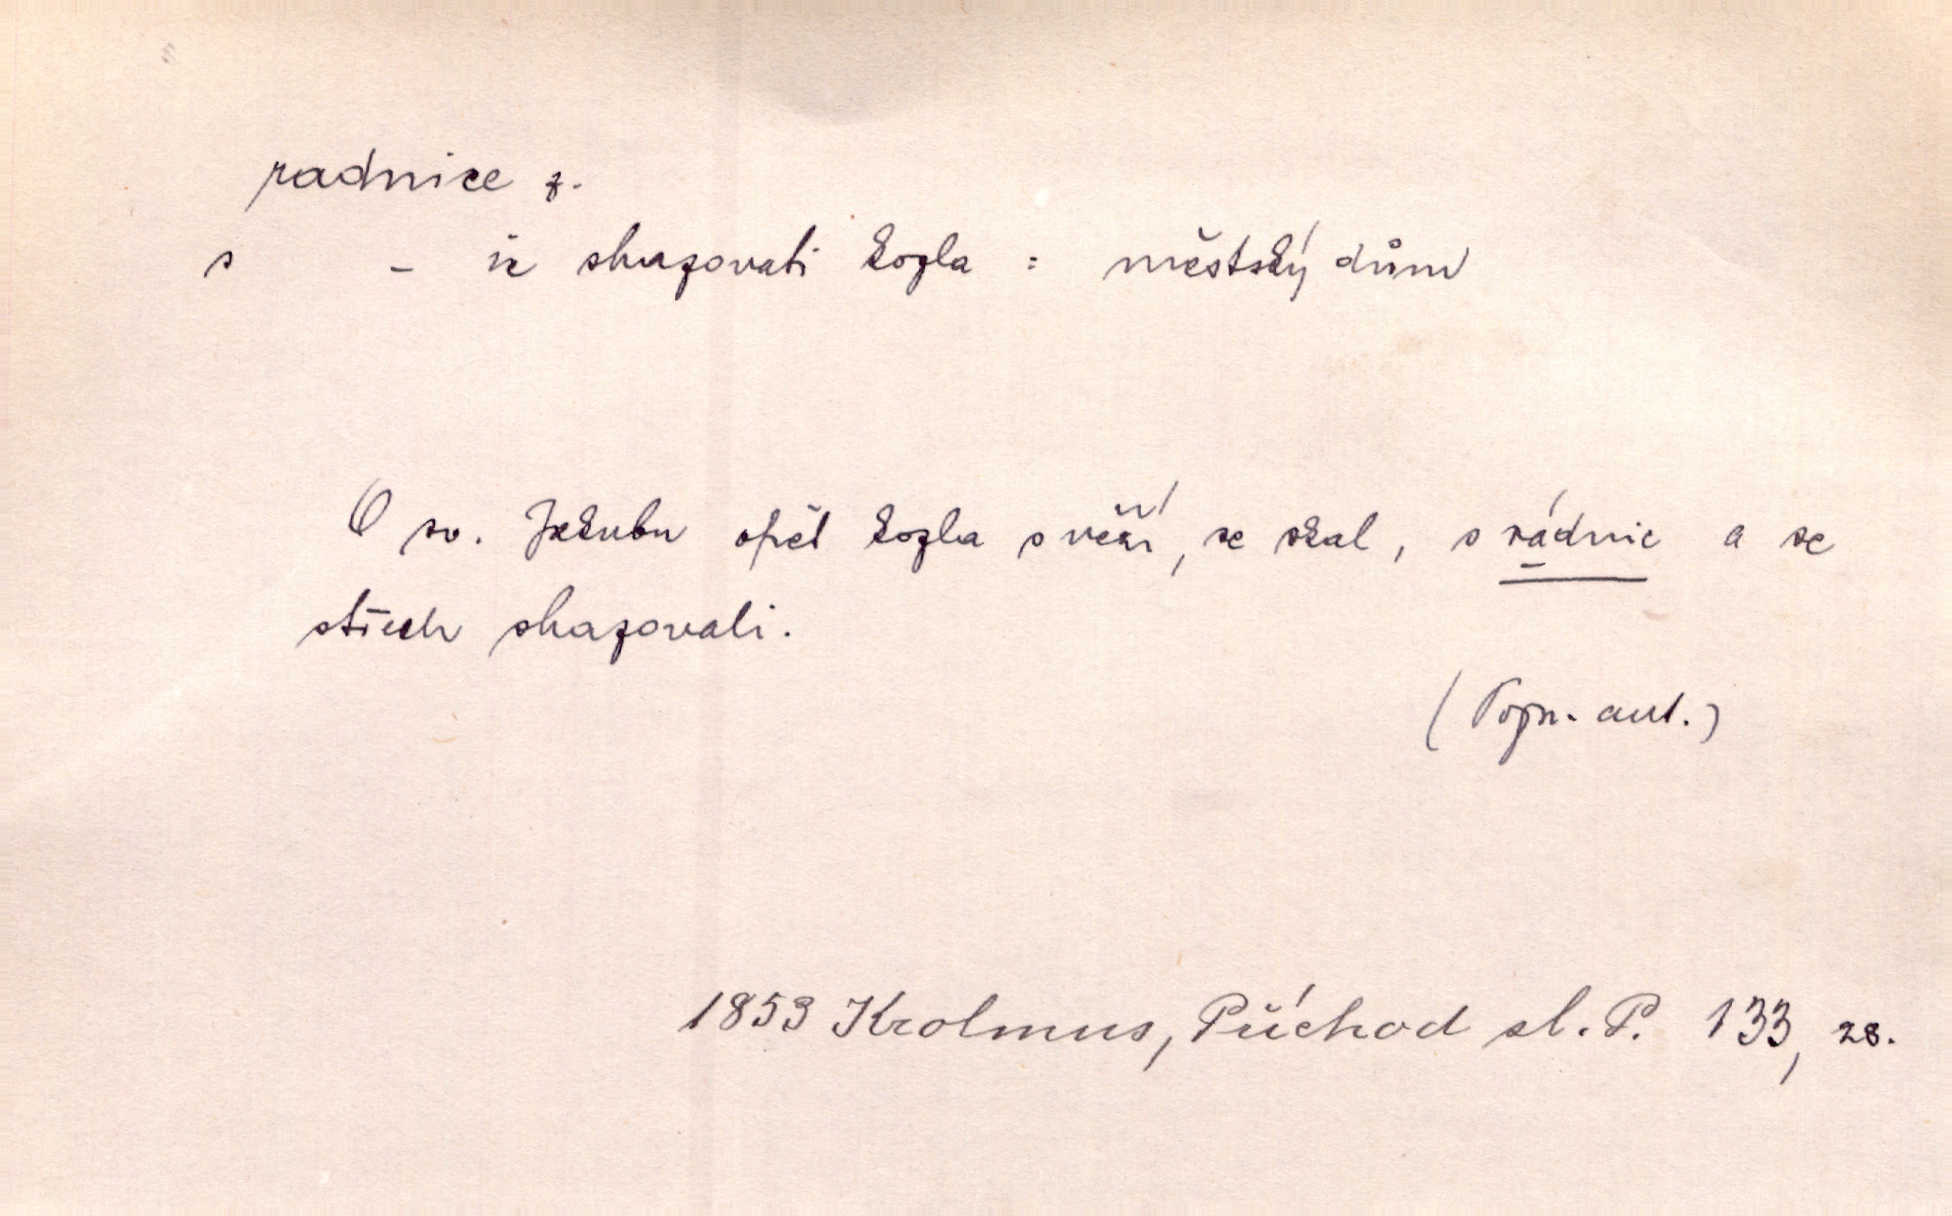 radnice ž.
s – ic shazovati kozla : městský dům
O sv. Jakubu opět kozla s věží, se skal, s rádnic a se
střech shazovali.
(Pozn. aut.)
1853 Krolmus, Příchod sl. P. 133, 28.